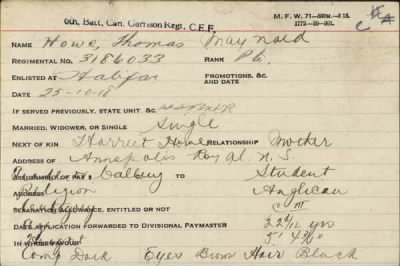 6th. Batt. Can. Garrison Regt. C.E.F.
M. F. W. 71—500M.—8 18.
1772—39—961.
NAME Howe, Thomas Maynard
REGIMENTAL NO. 3186033 RANK Pte.
ENLISTED AT Halifax PROMOTIONS, &C. AND DATE
DATE 25-10-18
IF SERVED PREVIOUSLY, STATE UNIT, &C.
MARRIED, WIDOWER, OR SINGLE Single
NEXT OF KIN Harriet Howe RELATIONSHIP Mother
ADDRESS OF Annapolis Royal N.S.
ASSIGNMENT OF PAY $ TO Student
ADDRESS Religion Anglican
SEPARATION ALLOWANCE, ENTITLED OR NOT C III
DATE APPLICATION FORWARDED TO DIVISIONAL PAYMASTER 22 4/12 yrs
IN WHOSE FAVOUR 5' 4 3/4"
Comp Dark Eyes Brown Hair Black